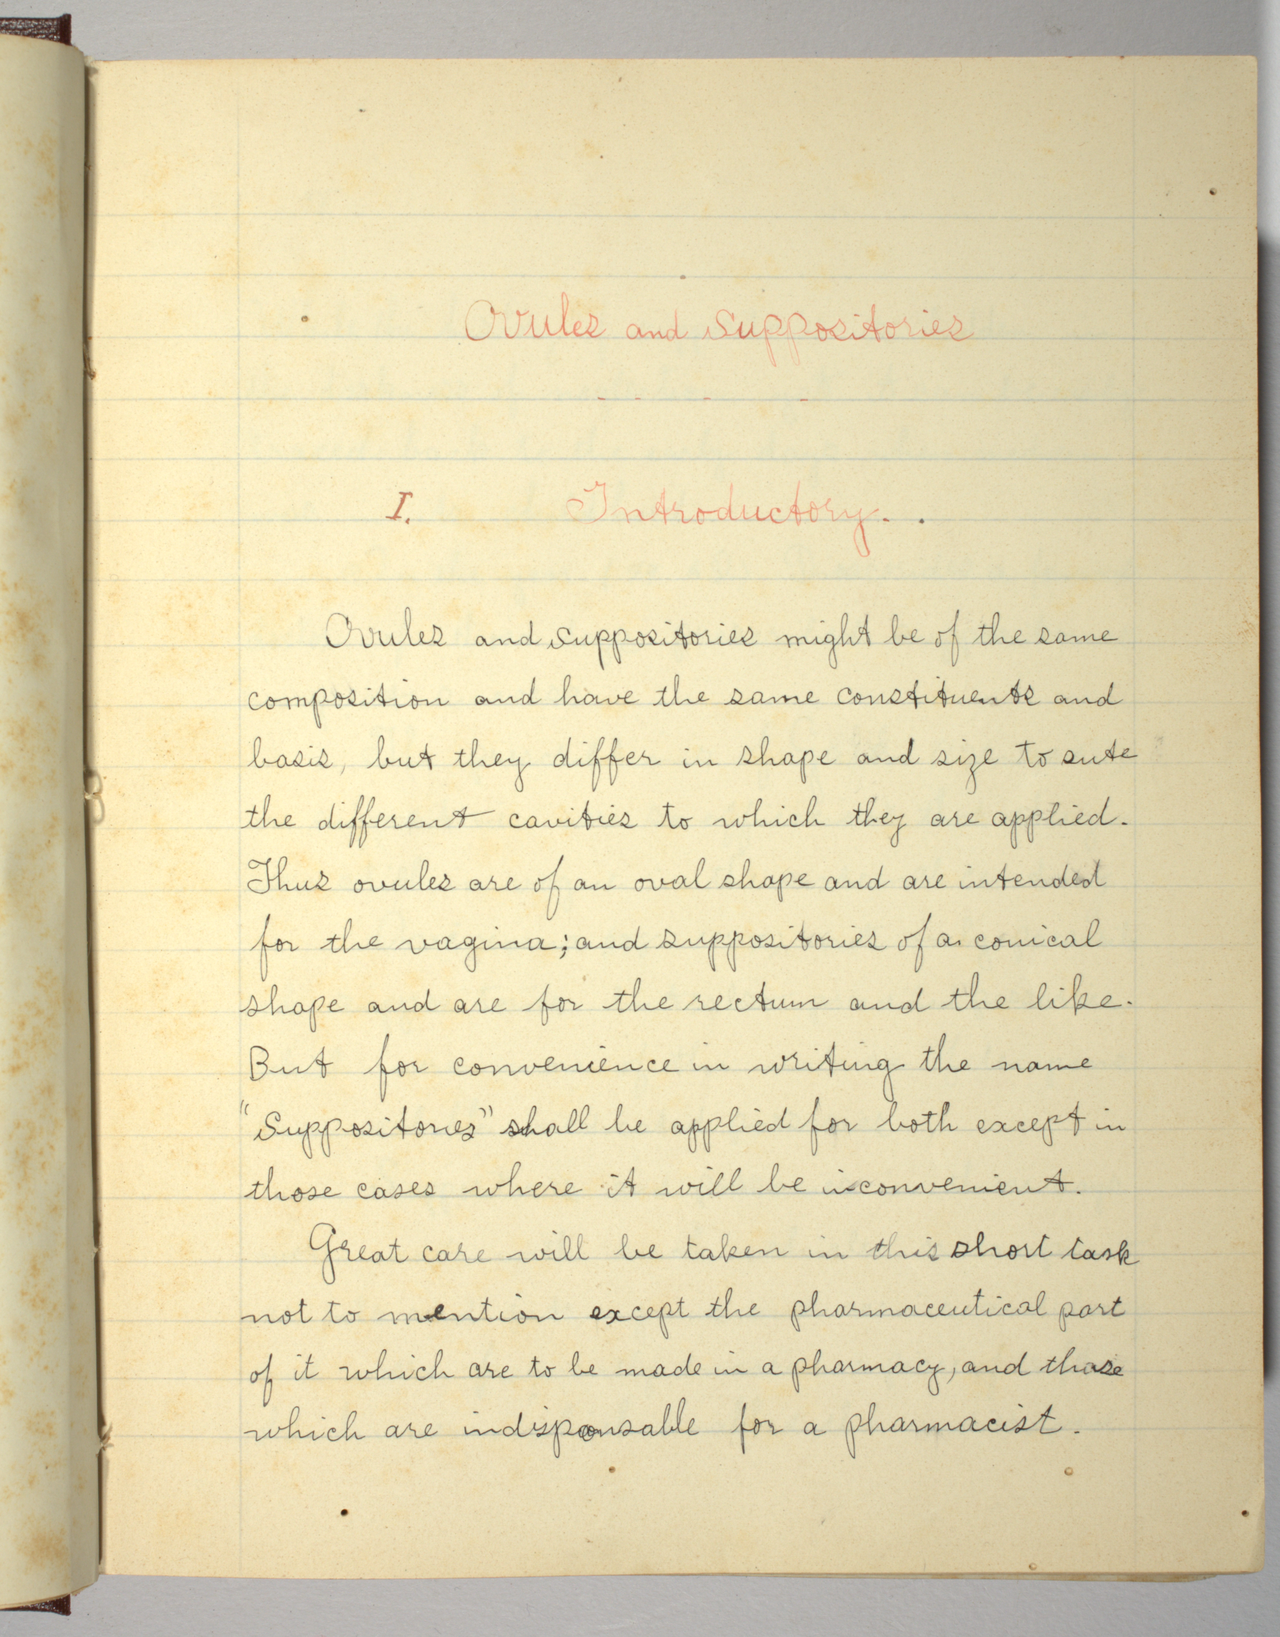 Ovules and Suppositories
- - - -
I. Introductory. .
Ovules and suppositories might be of the same
composition and have the same constituents and
basis, but they differ in shape and size to sute
the different cavities to which they are applied.
Thus ovules are of an oval shape and are intended
for the vagina; and suppositories of a conical
shape and are for the rectum and the like.
But for convenience in writing the name
"Suppositories" shall be applied for both except in
those cases where it will be inconvenient.
Great care will be taken in this short task
not to mention except the pharmaceutical part
of it which are to be made in a pharmacy, and those
which are indisponsable for a pharmacist.